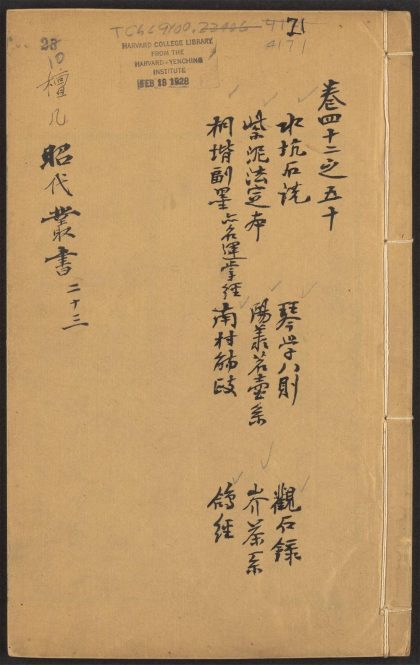 71
4171
HARVARD COLLEGE LIBRARY
FROM THE
HARVARD-YENCHING
INSTITUTE
FEB 18 1928
卷四十二之五十
水坑石記 琴學八則 觀石錄
紫泥法定本 陽羨茗壺系 岕茶系
桐堦副墨一名運掌經 南村觴政 鴿經
檀几
昭代叢書 二十三